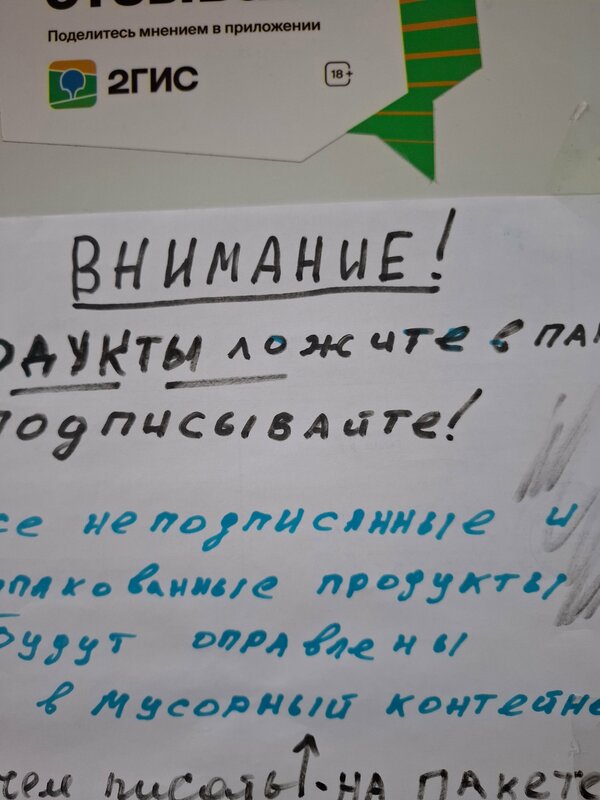 Поделитесь мнением в приложении
2ГИС
18+
ВНИМАНИЕ!
ОДУКТЫ ложите в ПА
подписывайте!
се неподписанные и
опакованные продукты
будут оправлены
в мусорный контейне
чем писать НА ПАКЕТЕ